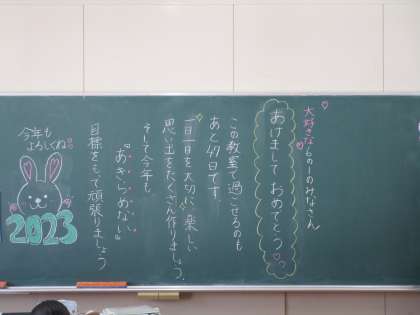 大好きな6の1のみなさん
あけまして おめでとう
この教室で過ごせるのも
あと49日です。
一日一日を大切に、楽しい
思い出をたくさん作りましょう。
そして今年も
『あきらめない』
目標をもって頑張りましょう
今年も
よろしくね
2023